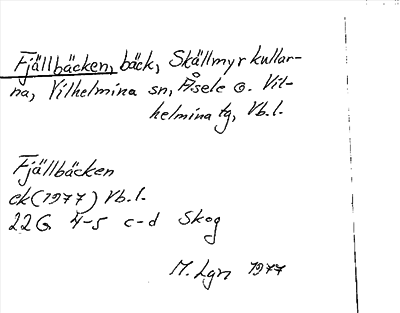 Fjällbäcken, bäck, Skällmyrkullar-
na, Vilhelmina sn, Åsele o. Vil-
helmina tg, Vb.l.
Fjällbäcken
ek (1977) Vb.l.
22G 4-5 c-d Skog
M. Lgn 1977